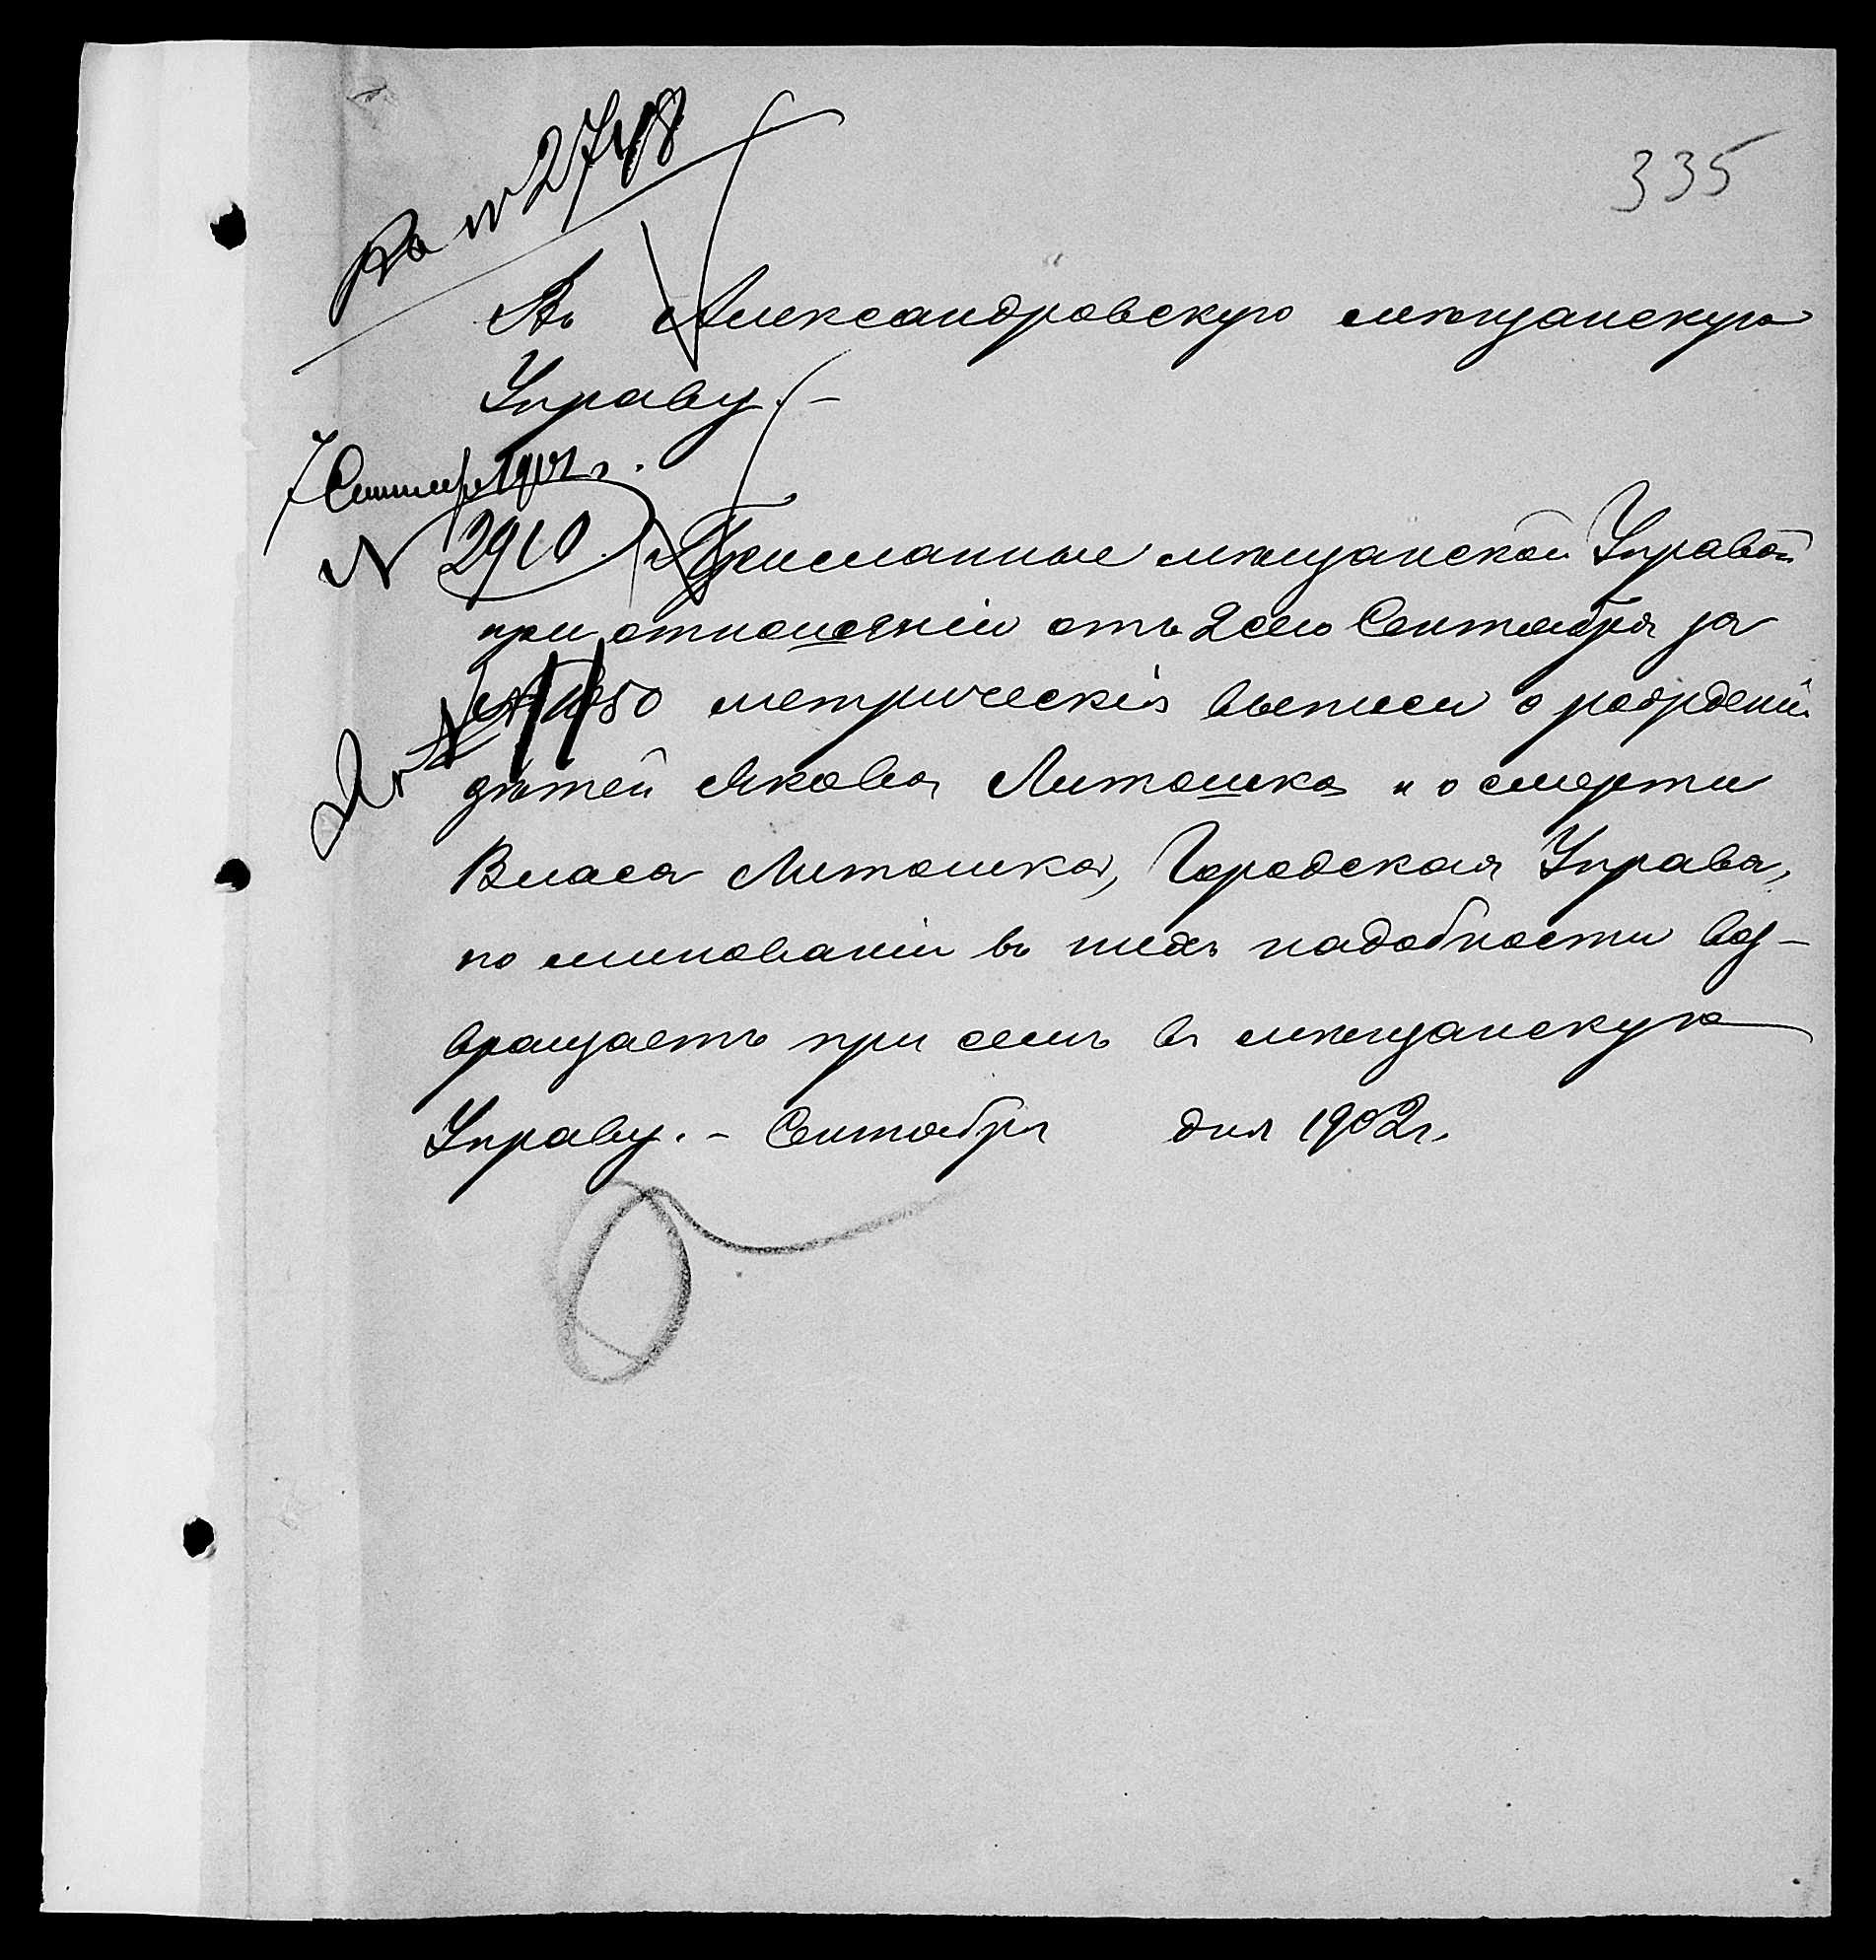 335
Ко № 2748
Въ Александровскую мѣщанскую
Управу.–
7 Сентября 1902 г.
№ 2910
Присланные мѣщанской Управой
при отношеніи отъ 2 сего Сентября за
№ 1050 метрическія выписи о рожденіи
дѣтей Якова Литошка и о смерти
Власа Литошка, Городская Управа,
по минованіи въ нихъ надобности воз-
вращаетъ при семъ въ мѣщанскую
Управу. – Сентября дня 1902 г.